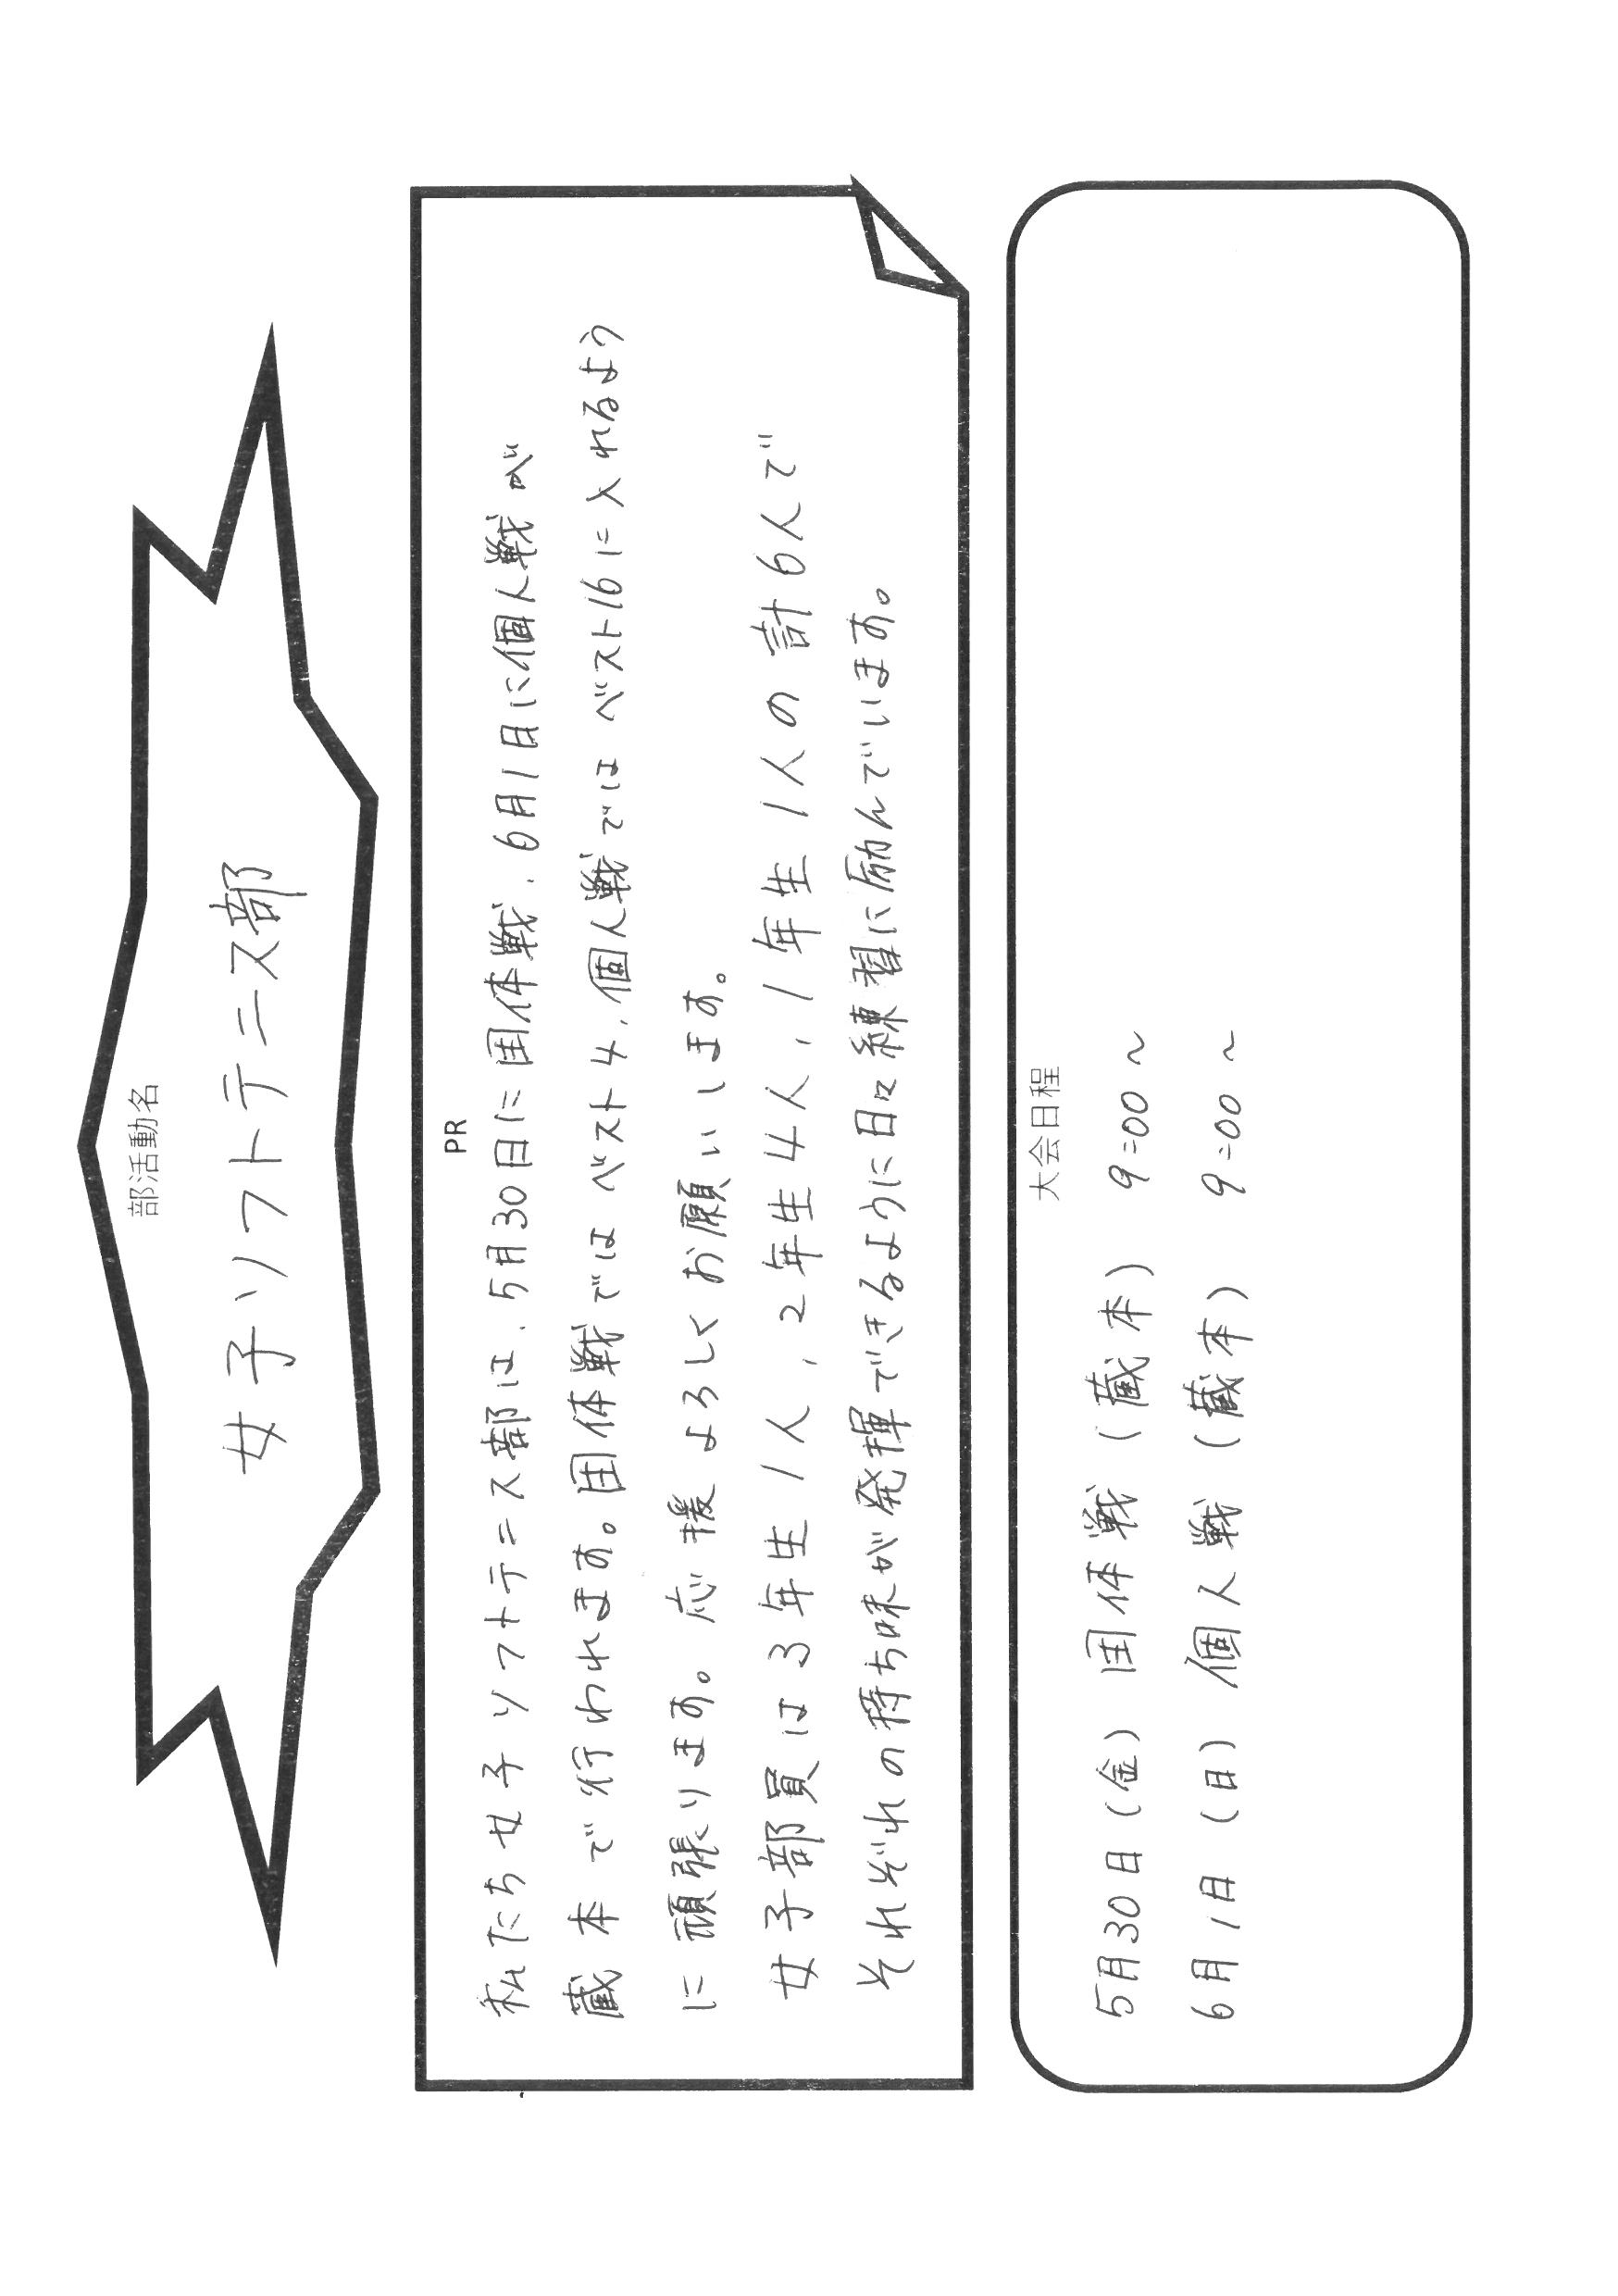 部活動名
女子ソフトテニス部
PR
私たち女子ソフトテニス部は、5月30日に団体戦、6月1日に個人戦が
蔵本で行われます。団体戦ではベスト4、個人戦ではベスト16に入れるよう
に頑張ります。応援よろしくお願いします。
女子部員は3年生1人、2年生4人、1年生1人の計6人で
それぞれの持ち味が発揮できるように日々練習に励んでいます。
大会日程
5月30日(金) 団体戦 (蔵本) 9:00~
6月1日(日) 個人戦 (蔵本) 9:00~